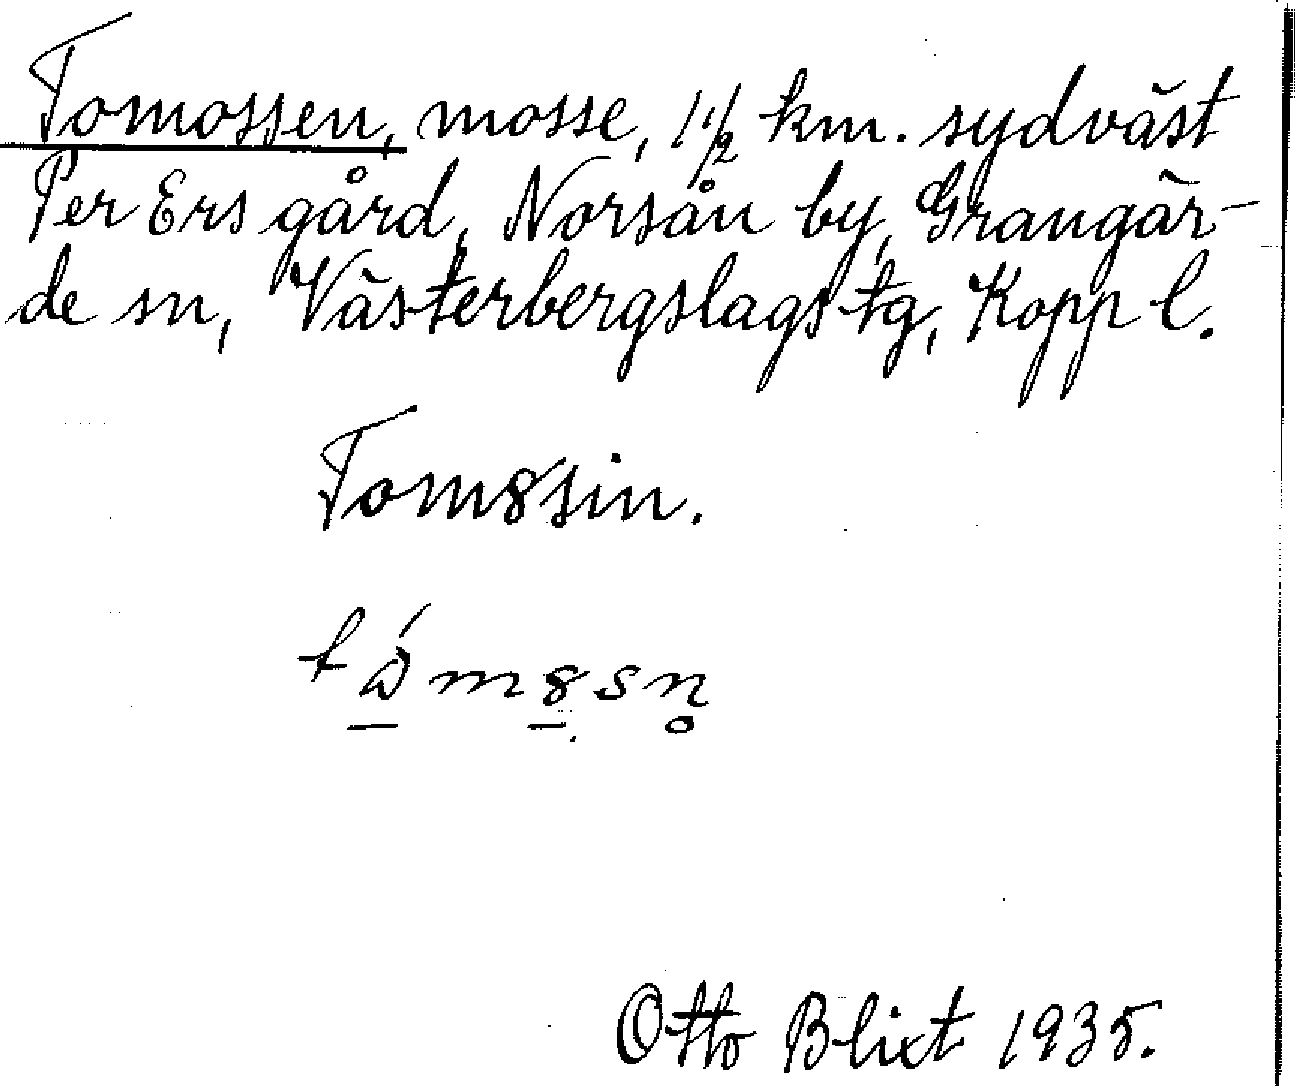 Tomossen, mosse, 1 1/2 km. sydväst
Per Ers gård, Norsån by, Grangär-
de sn, Västerbergslags tg, Kopp l.
Tom8sin.
Otto Blixt 1935.